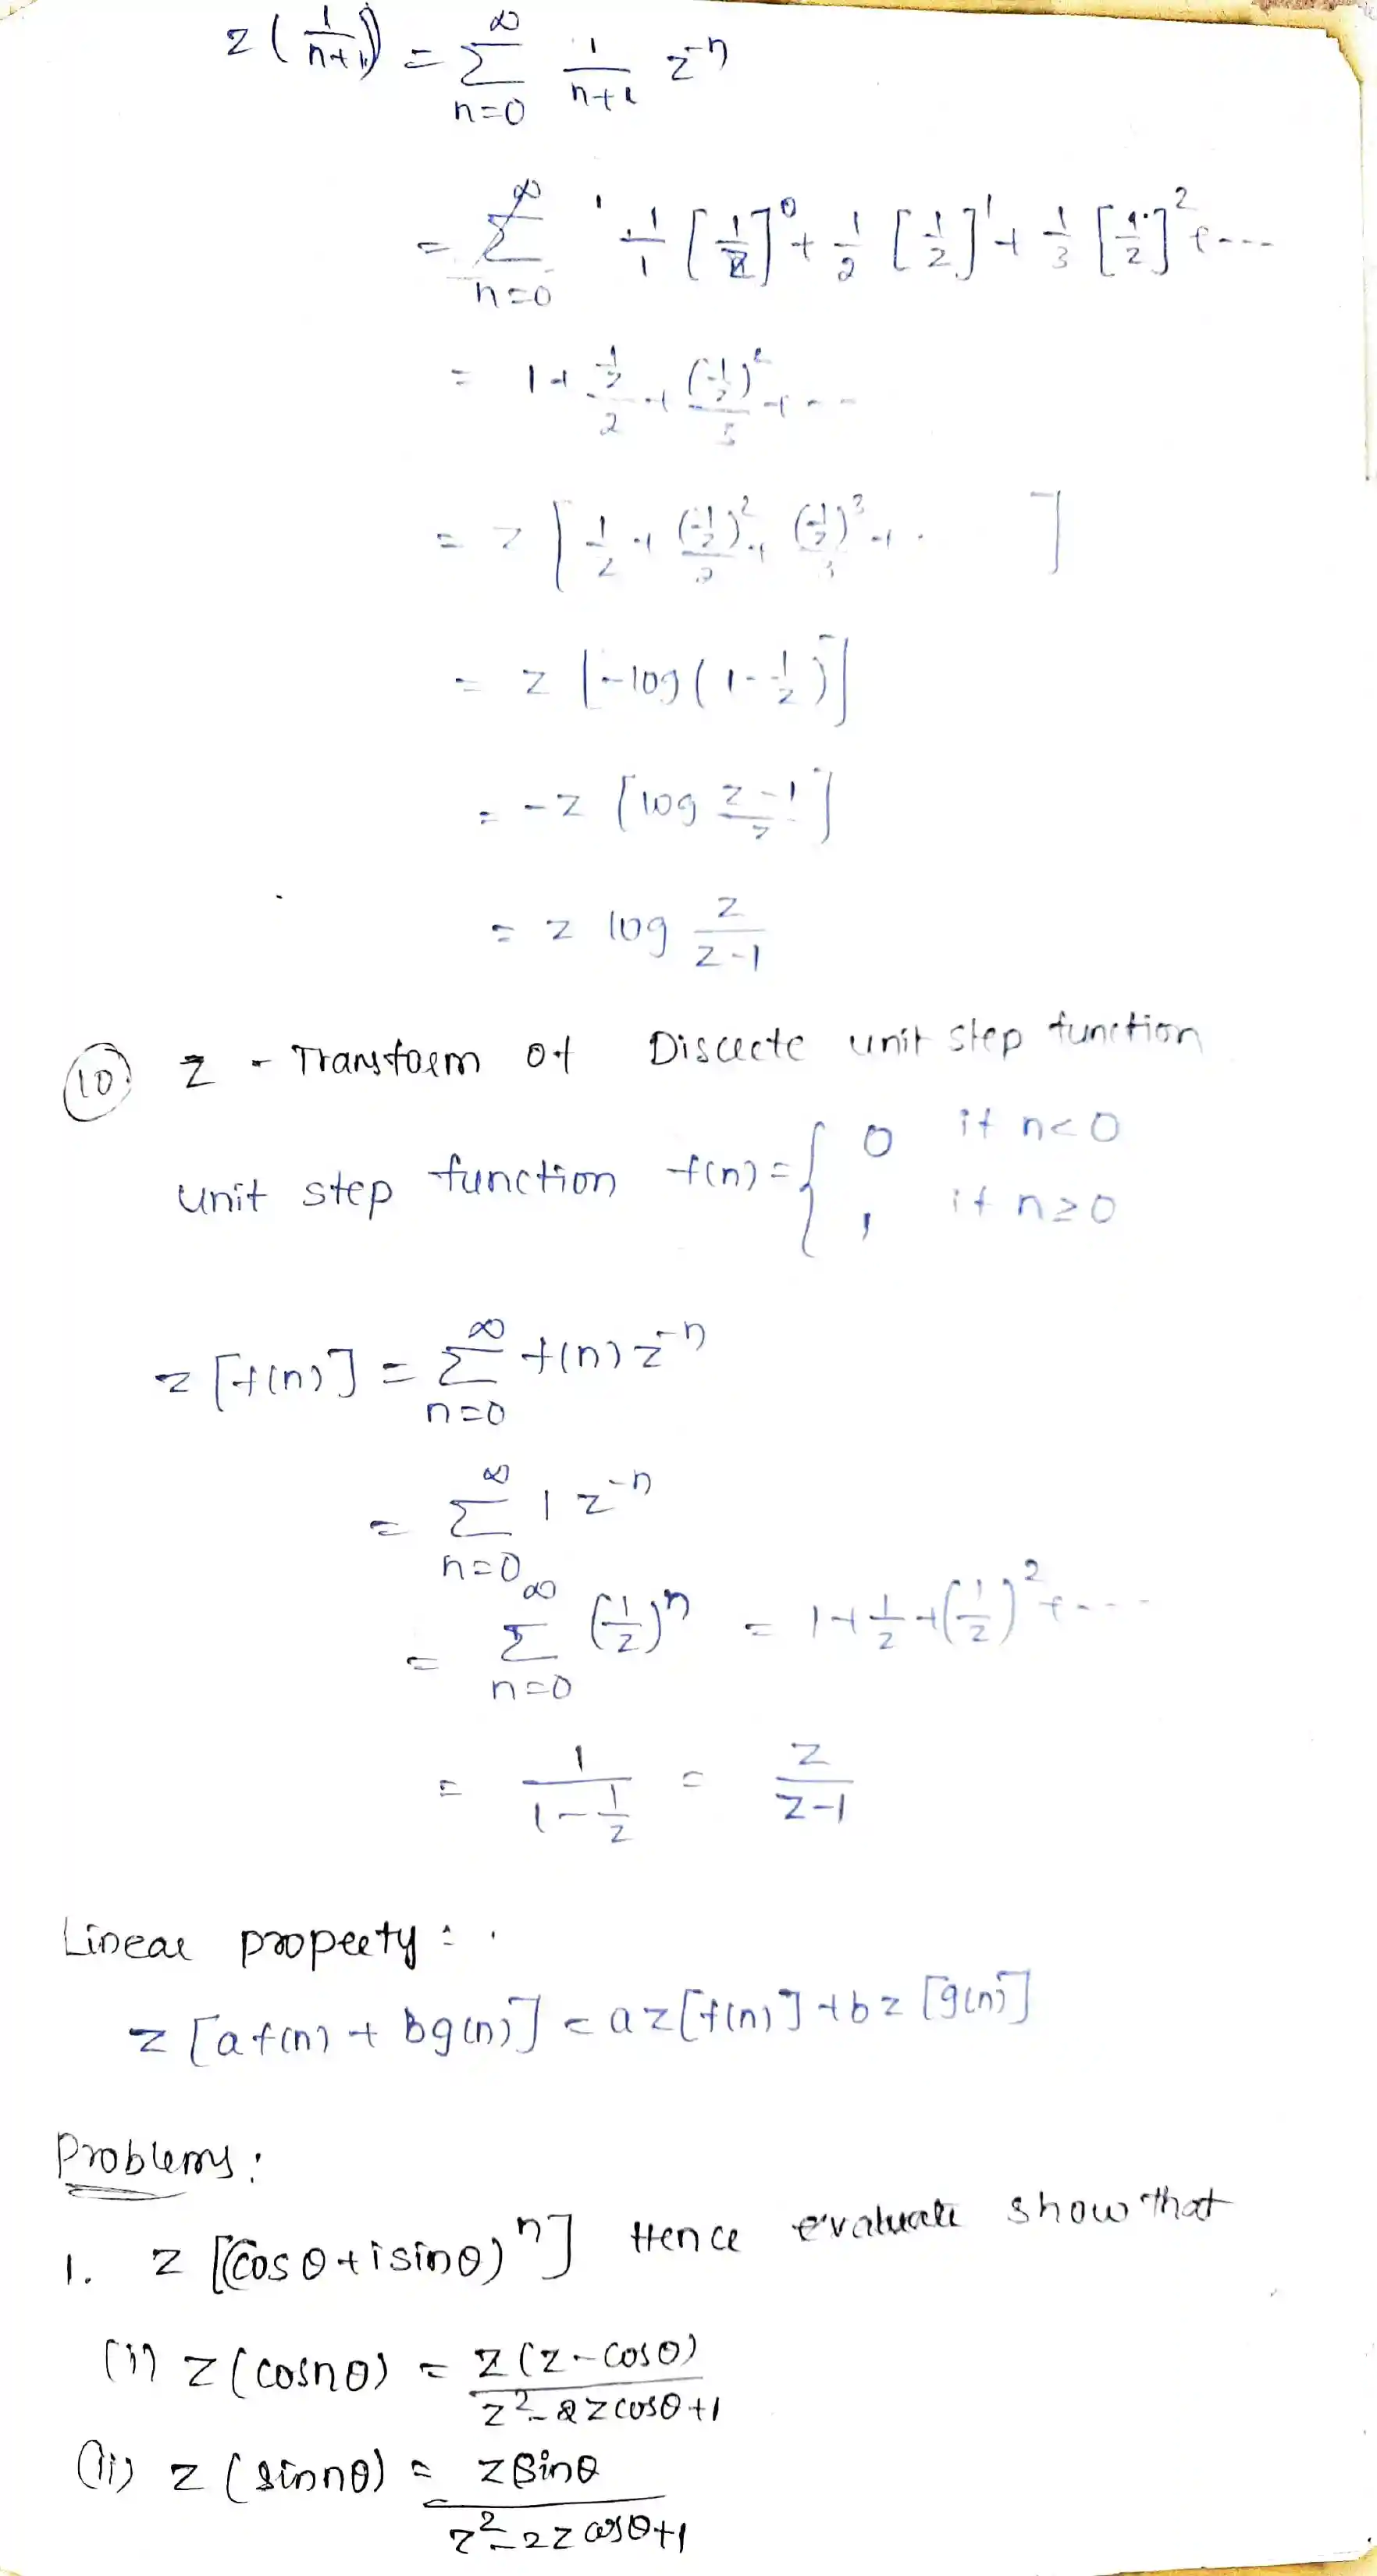 z(1/(n+1)) = ∑_{n=0}^{∞} 1/(n+1) z^{-n}
= ∑_{n=0}^{∞} 1/1 [1/z]^0 + 1/2 [1/z]^1 + 1/3 [1/z]^2 + ---
= 1 + (1/z)/2 + (1/z)^2/3 + ---
= z [1/z + (1/z)^2/2 + (1/z)^3/3 + . ]
= z [-log(1 - 1/z)]
= -z [log (z-1)/z]
= z log z/(z-1)
(10) z - Transform of Discrete unit step function
unit step function f(n) = { 0 if n<0
1 if n≥0
z[f(n)] = ∑_{n=0}^{∞} f(n) z^{-n}
= ∑_{n=0}^{∞} 1 z^{-n}
= ∑_{n=0}^{∞} (1/z)^n = 1 + 1/z + (1/z)^2 + ----
= 1/(1 - 1/z) = z/(z-1)
Linear property :
z[af(n) + bg(n)] = az[f(n)] + bz[g(n)]
Problems :
1. z[(cosθ + isinθ)^n] Hence evaluate show that
(i) z(cosnθ) = z(z-cosθ)/(z^2 - 2zcosθ + 1)
(ii) z(sinnθ) = zsinθ/(z^2 - 2zcosθ + 1)